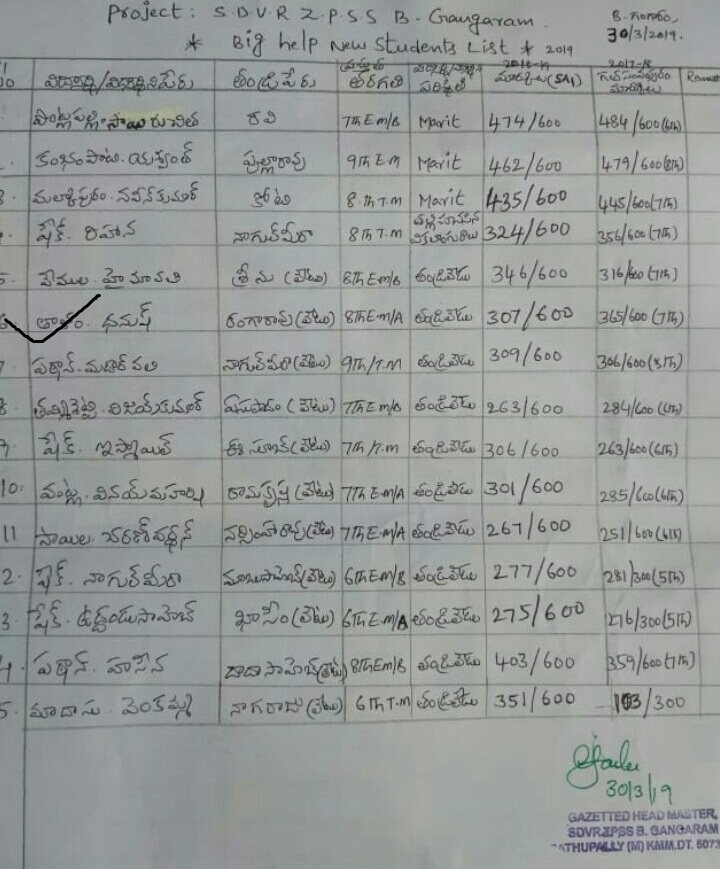 Project : S.D.V.R Z.P.S.S B. Gangaram.
B. గంగారం,
30/3/2019.
* Big help New Students List * 2019
విద్యార్థి/విద్యార్థిని పేరు తండ్రి పేరు ప్రస్తుత తరగతి పరిస్థితి 2018-19 మార్కులు (SA1) 2017-18 గత సంవత్సరం మార్కులు
సాయి రుచిత రవి 7Th E.m/B Marit 474/600 484/600(6th)
కంభంపాటి. యశ్వంత్ పుల్లారావు 9Th E.m Marit 462/600 479/600(8th)
మల్లాపురం. నవీన్ కుమార్ కోటి 8th T.m Marit 435/600 445/600(7th)
షేక్. రిహాన నాగుల్ మీరా 8Th T.m 324/600 356/600(7th)
వేముల. హైమావతి శ్రీను (లేటు) 8Th E.m/B తండ్రిలేడు 346/600 316/600(7th)
తాళం. ధనుష్ రంగారావు (లేటు) 8Th E.m/A తండ్రిలేడు 307/600 365/600(7th)
పఠాన్. మదార్ వలి నాగుల్ మీరా (లేటు) 9Th/T.m తండ్రిలేడు 309/600 306/600(8th)
విజయ్ కుమార్ ఏసుపాదం (లేటు) 7Th E.m/B తండ్రిలేడు 263/600 284/600(6th)
షేక్. ఇస్మాయిల్ (లేటు) 7th/T.m తండ్రిలేడు 306/600 263/600(6th)
10. వినయ్ మహర్షి రామకృష్ణ (లేటు) 7Th E.m/A తండ్రిలేడు 301/600 285/600(6th)
11 సాయిల. యశోవర్ధన్ నర్సింహారావు (లేటు) 7Th E.m/A తండ్రిలేడు 267/600 251/600(6th)
2. షేక్. నాగుల్ మీరా మాబుసాహెబ్ (లేటు) 6Th E.m/B తండ్రిలేడు 277/600 281/300(5th)
3. షేక్. ఉద్దండుసాహెబ్ ఖాసీం (లేటు) 6Th E.m/A తండ్రిలేడు 275/600 276/300(5th)
4. పఠాన్. హసీన దాదాసాహెబ్ (లేటు) 8Th E.m/B తండ్రిలేడు 403/600 359/600(7th)
5. మాదాసు. వెంకమ్మ నాగరాజు (లేటు) 6Th T.m తండ్రిలేడు 351/600 103/300
30/3/19
GAZETTED HEAD MASTER,
SDVRZPSS B. GANGARAM
SATHUPALLY (M) KMM.DT. 5073